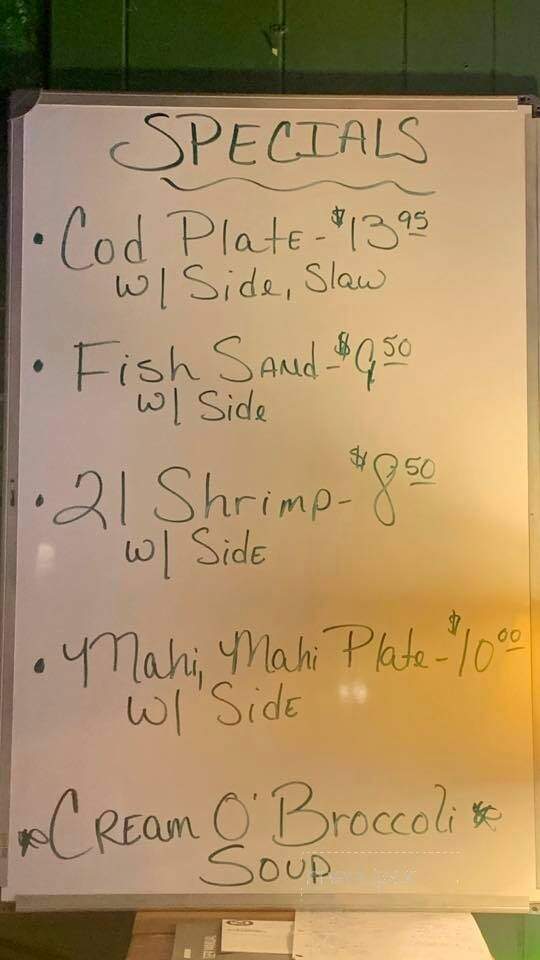 SPECIALS
• Cod Plate - $13.95
w/ Side, Slaw
• Fish Sand - $9.50
w/ Side
• 21 Shrimp - $8.50
w/ Side
• Mahi, Mahi Plate - $10.00
w/ Side
* Cream O' Broccoli *
Soup